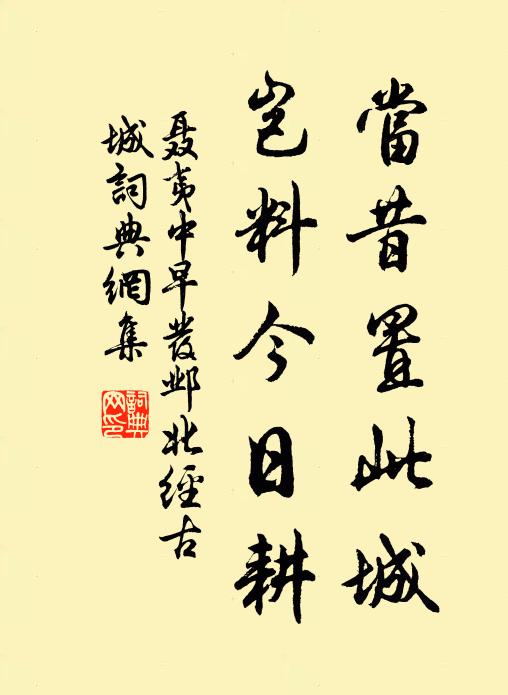 當昔置此城
豈料今日耕
聶夷中早發邺北經古
城詞典網集
詞典
网印